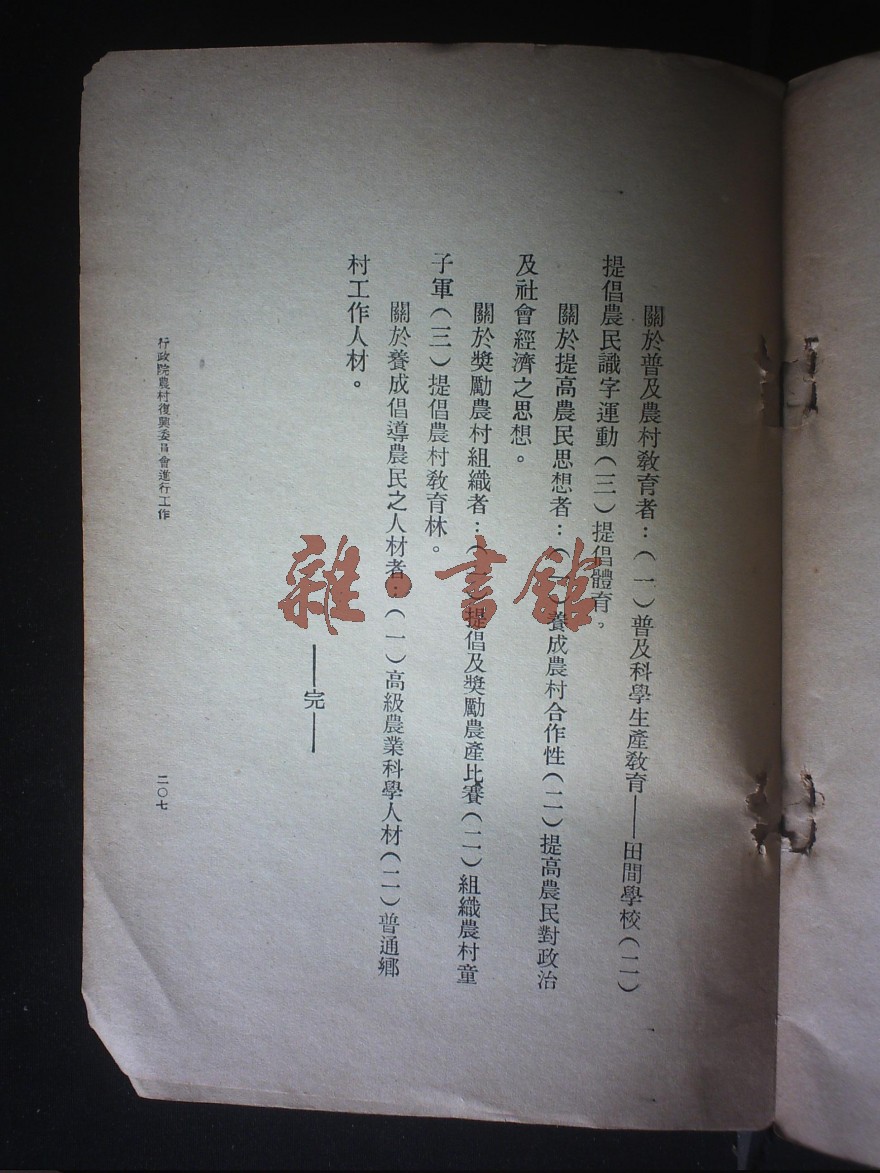 關於普及農村教育者：（一）普及科學生產教育——田間學校（二）
提倡農民識字運動（三）提倡體育。
關於提高農民思想者：（一）養成農村合作性（二）提高農民對政治
及社會經濟之思想。
關於獎勵農村組織者：（一）提倡及獎勵農產比賽（二）組織農村童
子軍（三）提倡農村教育林。
關於養成倡導農民之人材者：（一）高級農業科學人材（二）普通鄉
村工作人材。
——完——
行政院農村復興委員會進行工作
二〇七
雜·書館